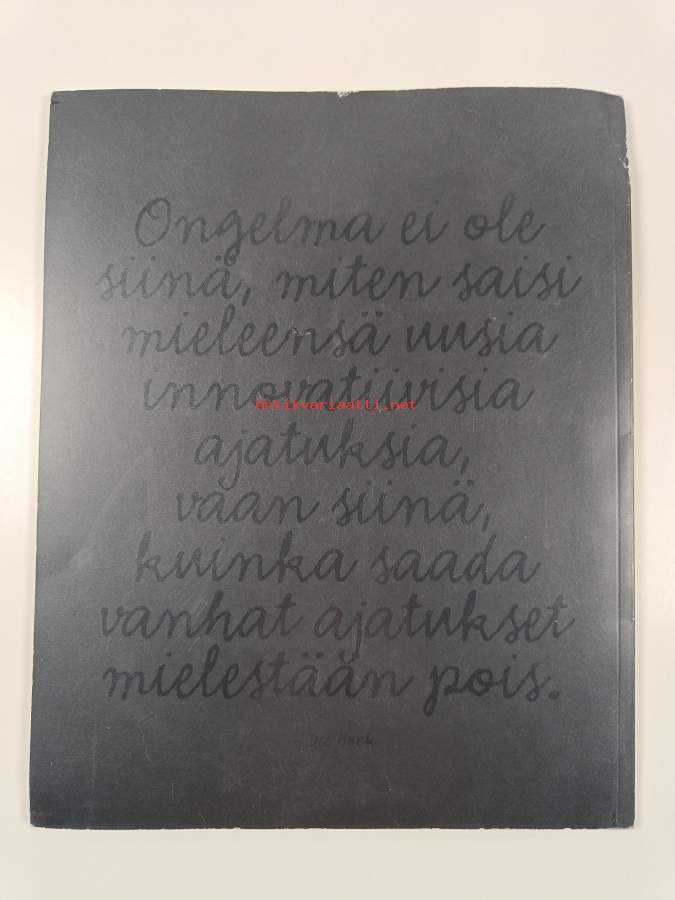 Ongelma ei ole
siinä, miten saisi
mieleensä uusia
innovatiivisia
antikvariaatti.net
ajatuksia,
vaan siinä,
kuinka saada
vanhat ajatukset
mielestään pois.
Dee Hock